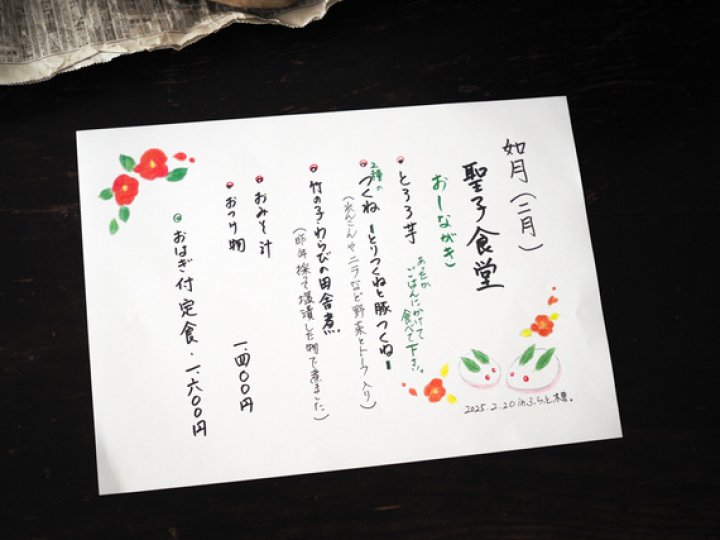 如月(二月)
聖子食堂
おしながき
とろろ芋
あたたか
ごはんにかけて
食べて下さい。
2種の
つくね ーとりつくねと豚つくねー
(れんこんやニラなど野菜とトーフ入り)
竹の子・わらびの田舎煮
(昨年採って塩漬した物で煮ました)
おみそ汁
おつけ物
一.四〇〇円
おはぎ付定食・一.六〇〇円
2025.2.20 in ふらっと木標。